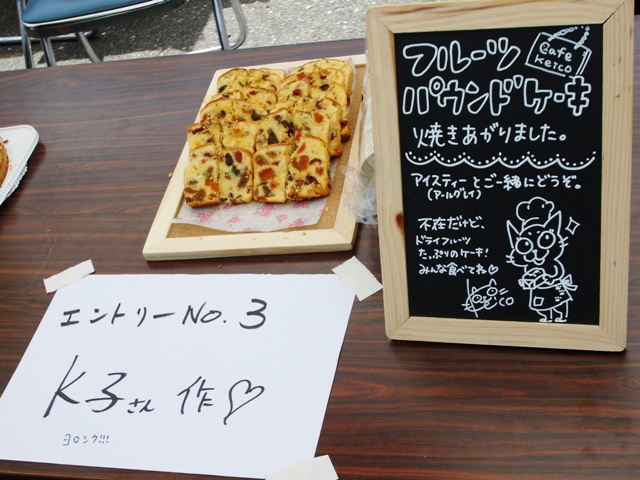 フルーツ
Cafe
KEICO
パウンドケーキ
焼きあがりました。
アイスティーとご一緒にどうぞ。
(アールグレイ)
不在だけど、
ドライフルーツ
たっぷりのケーキ!
みんな食べてね♡
エントリーNo.3
K子さん 作♡
ヨロシク!!!